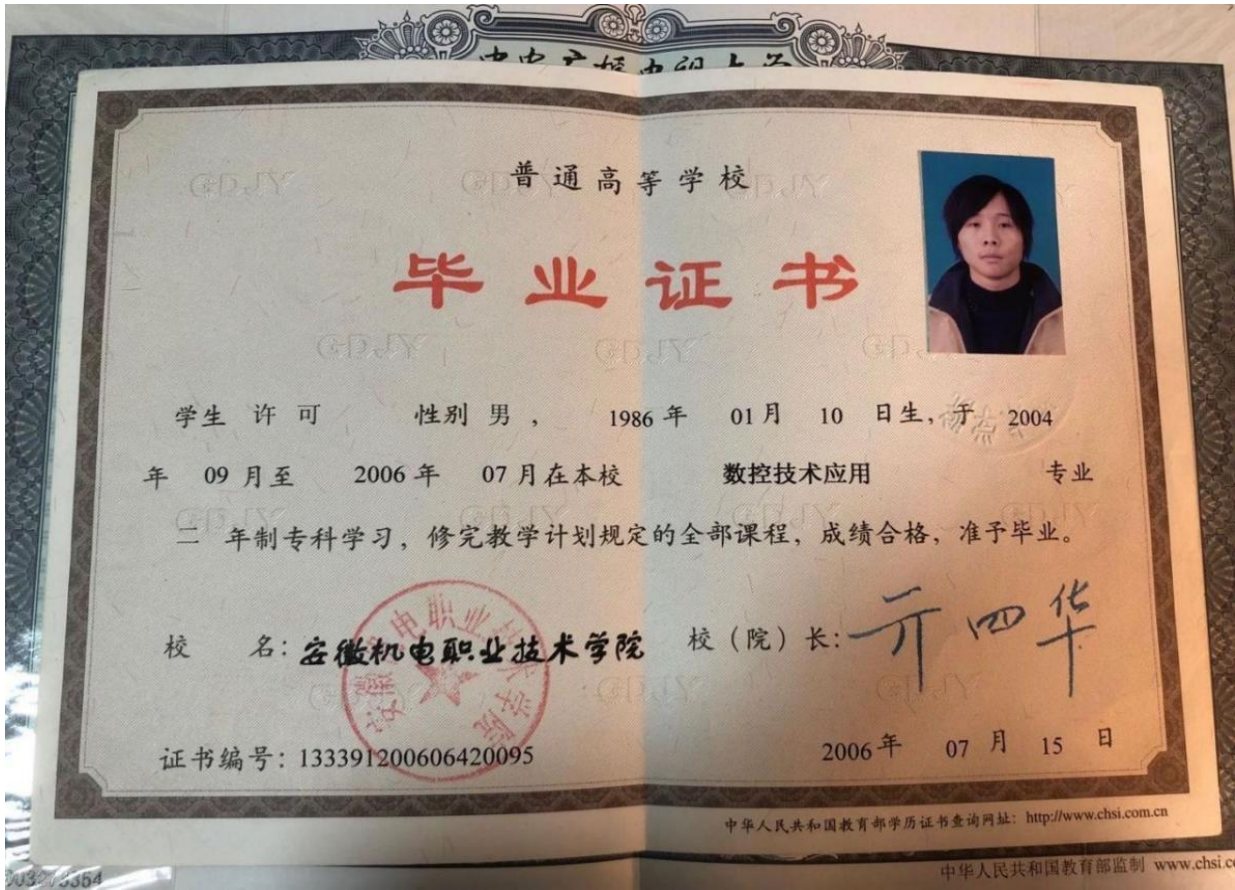 中央广播电视大学
普通高等学校
毕业证书
学生 许可 性别 男 , 1986 年 01 月 10 日生, 于 2004
年 09 月至 2006 年 07 月在本校 数控技术应用 专业
二 年制专科学习, 修完教学计划规定的全部课程, 成绩合格, 准予毕业。
校 名: 安徽机电职业技术学院 校(院)长:
安徽机电职业技术学院
证书编号: 133391200606420095 2006 年 07 月 15 日
中华人民共和国教育部学历证书查询网址: http://www.chsi.com.cn
中华人民共和国教育部监制 www.chsi.co